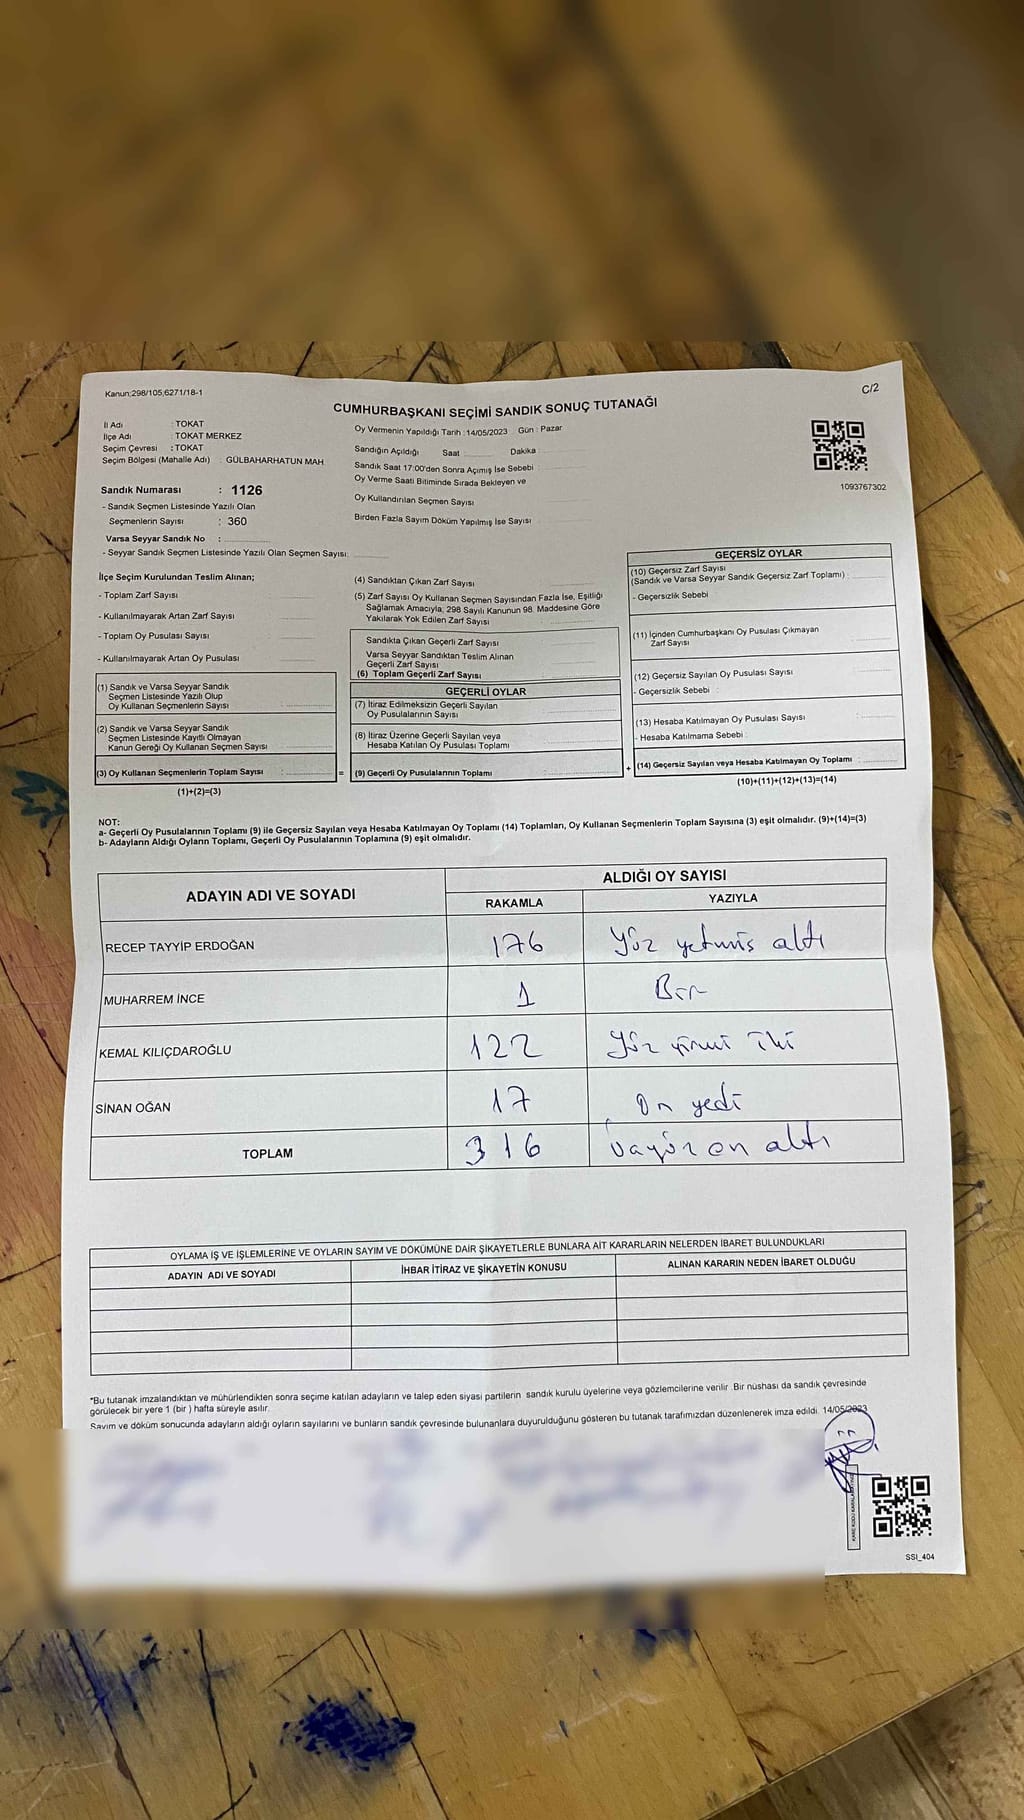 Kanun;298/105;6271/18-1
C/2
CUMHURBAŞKANI SEÇİMİ SANDIK SONUÇ TUTANAĞI
İl Adı : TOKAT
İlçe Adı : TOKAT MERKEZ
Seçim Çevresi : TOKAT
Seçim Bölgesi (Mahalle Adı) : GÜLBAHARHATUN MAH
Sandık Numarası : 1126
- Sandık Seçmen Listesinde Yazılı Olan
Seçmenlerin Sayısı : 360
Varsa Seyyar Sandık No :
- Seyyar Sandık Seçmen Listesinde Yazılı Olan Seçmen Sayısı:
Oy Vermenin Yapıldığı Tarih : 14/05/2023 Gün : Pazar
Sandığın Açıldığı Saat Dakika
Sandık Saat 17:00'den Sonra Açımış İse Sebebi
Oy Verme Saati Bitiminde Sırada Bekleyen ve
Oy Kullandırılan Seçmen Sayısı
Birden Fazla Sayım Döküm Yapılmış İse Sayısı
1093767302
İlçe Seçim Kurulundan Teslim Alınan;
- Toplam Zarf Sayısı
- Kullanılmayarak Artan Zarf Sayısı
- Toplam Oy Pusulası Sayısı
- Kullanılmayarak Artan Oy Pusulası
(1) Sandık ve Varsa Seyyar Sandık
Seçmen Listesinde Yazılı Olup
Oy Kullanan Seçmenlerin Sayısı :
(2) Sandık ve Varsa Seyyar Sandık
Seçmen Listesinde Kayıtlı Olmayan
Kanun Gereği Oy Kullanan Seçmen Sayısı
(3) Oy Kullanan Seçmenlerin Toplam Sayısı :
(1)+(2)=(3)
=
(4) Sandıktan Çıkan Zarf Sayısı
(5) Zarf Sayısı Oy Kullanan Seçmen Sayısından Fazla İse, Eşitliği
Sağlamak Amacıyla; 298 Sayılı Kanunun 98. Maddesine Göre
Yakılarak Yok Edilen Zarf Sayısı :
Sandıkta Çıkan Geçerli Zarf Sayısı
Varsa Seyyar Sandıktan Teslim Alınan
Geçerli Zarf Sayısı
(6) Toplam Geçerli Zarf Sayısı
GEÇERLİ OYLAR
(7) İtiraz Edilmeksizin Geçerli Sayılan
Oy Pusulalarının Sayısı
(8) İtiraz Üzerine Geçerli Sayılan veya
Hesaba Katılan Oy Pusulası Toplamı
(9) Geçerli Oy Pusulalarının Toplamı :
+
GEÇERSİZ OYLAR
(10) Geçersiz Zarf Sayısı
(Sandık ve Varsa Seyyar Sandık Geçersiz Zarf Toplamı) :
- Geçersizlik Sebebi
(11) İçinden Cumhurbaşkanı Oy Pusulası Çıkmayan
Zarf Sayısı
(12) Geçersiz Sayılan Oy Pusulası Sayısı
- Geçersizlik Sebebi :
(13) Hesaba Katılmayan Oy Pusulası Sayısı :
- Hesaba Katılmama Sebebi :
(14) Geçersiz Sayılan veya Hesaba Katılmayan Oy Toplamı :
(10)+(11)+(12)+(13)=(14)
NOT:
a- Geçerli Oy Pusulalarının Toplamı (9) ile Geçersiz Sayılan veya Hesaba Katılmayan Oy Toplamı (14) Toplamları, Oy Kullanan Seçmenlerin Toplam Sayısına (3) eşit olmalıdır. (9)+(14)=(3)
b- Adayların Aldığı Oyların Toplamı, Geçerli Oy Pusulalarının Toplamına (9) eşit olmalıdır.
ADAYIN ADI VE SOYADI
ALDIĞI OY SAYISI
RAKAMLA YAZIYLA
RECEP TAYYİP ERDOĞAN 176 Yüz yetmiş altı
MUHARREM İNCE 1 Bir
KEMAL KILIÇDAROĞLU 122 Yüz yirmi iki
SİNAN OĞAN 17 On yedi
TOPLAM 316 üçyüz on altı
OYLAMA İŞ VE İŞLEMLERİNE VE OYLARIN SAYIM VE DÖKÜMÜNE DAİR ŞİKAYETLERLE BUNLARA AİT KARARLARIN NELERDEN İBARET BULUNDUKLARI
ADAYIN ADI VE SOYADI İHBAR İTİRAZ VE ŞİKAYETİN KONUSU ALINAN KARARIN NEDEN İBARET OLDUĞU
*Bu tutanak imzalandıktan ve mühürlendikten sonra seçime katılan adayların ve talep eden siyasi partilerin sandık kurulu üyelerine veya gözlemcilerine verilir. Bir nüshası da sandık çevresinde
görülecek bir yere 1 (bir ) hafta süreyle asılır.
Sayım ve döküm sonucunda adayların aldığı oyların sayılarını ve bunların sandık çevresinde bulunanlara duyurulduğunu gösteren bu tutanak tarafımızdan düzenlenerek imza edildi. 14/05/2023
SSI_404